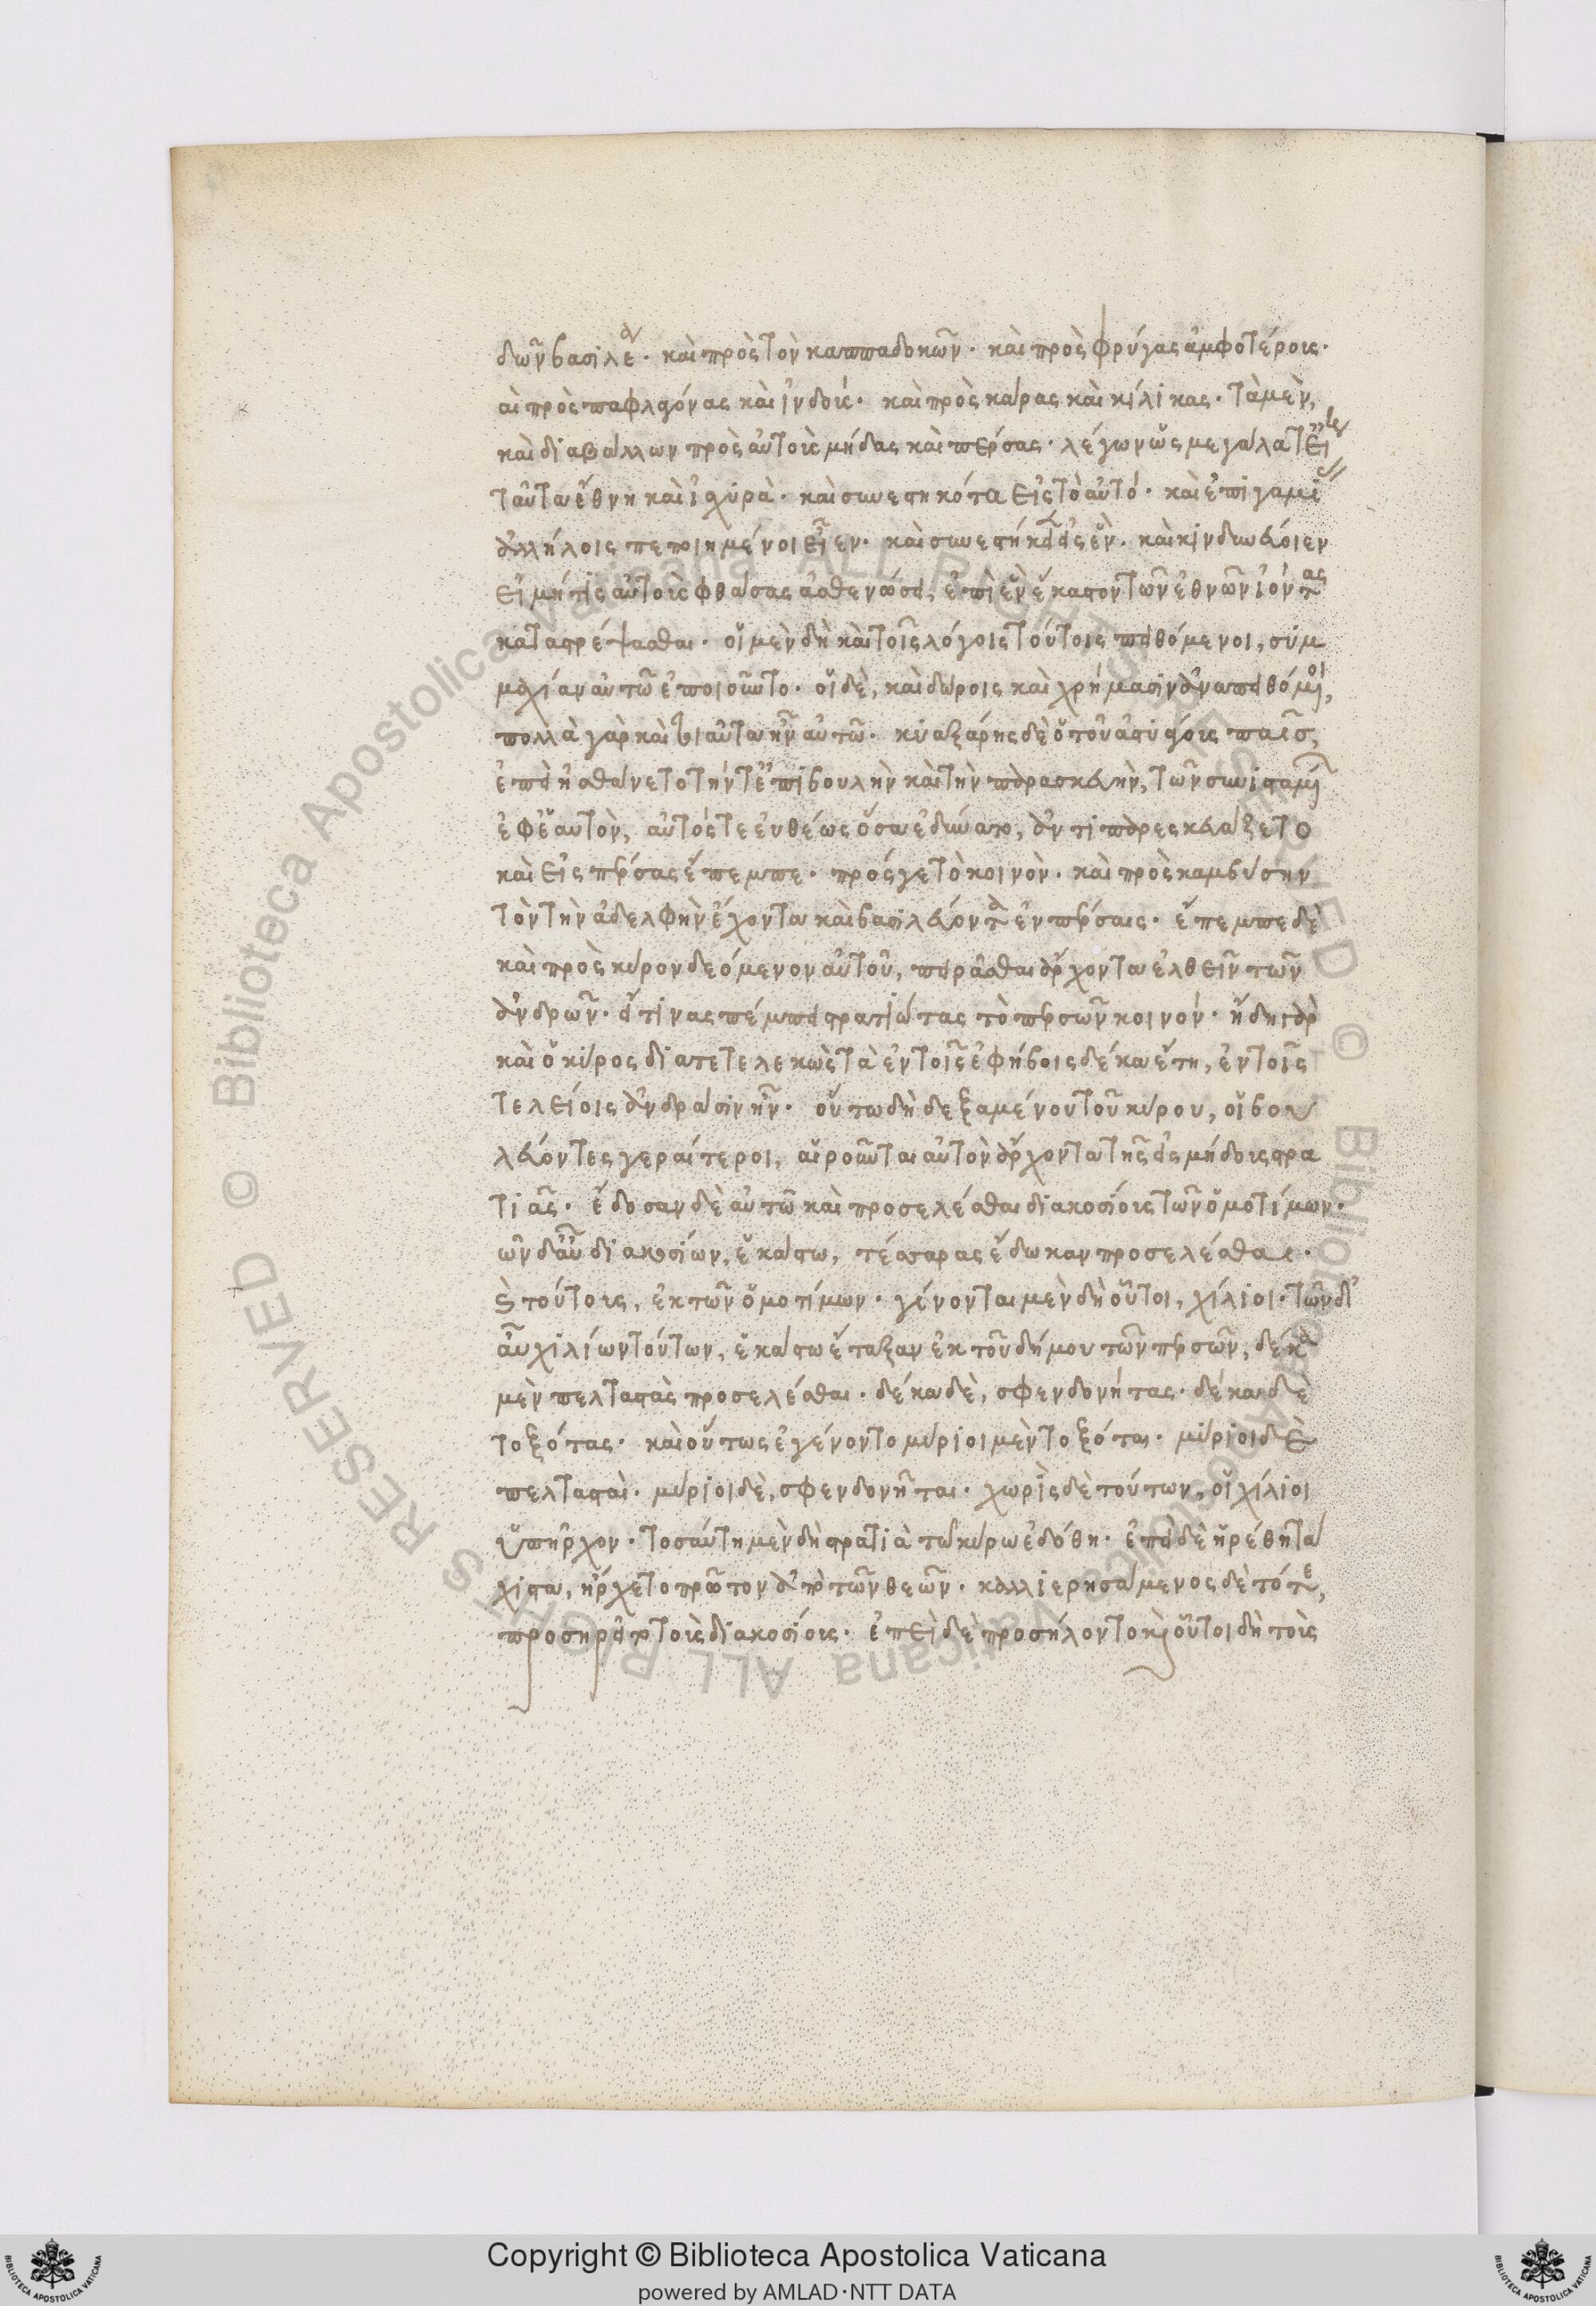 δῶν βασιλέα· καὶ πρὸς τὸν καππαδοκῶν· καὶ πρὸς φρύγας ἀμφοτέρους·
αὶ πρὸς παφλαγόνας καὶ ἰνδούς· καὶ πρὸς κάρας καὶ κίλικας· τὰ μὲν,
καὶ διαβάλλων πρὸς αὐτοὺς μήδας καὶ πέρσας· λέγων ὡς μεγάλα τ εἴη
ταῦτα ἔθνη καὶ ἰσχυρὰ· καὶ συνεστηκότα εἰς τὸ αὐτό· καὶ ἐπιγαμίας
ἀλλήλοις πεποιημένοι εἶεν· καὶ συνεστήκασιν εἰς ἓν· καὶ κινδυνεύοιεν
εἰ μή τις αὐτοὺς φθάσας ἀσθενώσει, ἐπὶ ἓν ἕκαστον τῶν ἐθνῶν ἰόντας
καταστρέψασθαι· οἱ μὲν δὴ καὶ τοῖς λόγοις τούτοις πειθόμενοι, συμ
μαχίαν αὐτῶ ἐποιοῦντο· οἱ δὲ, καὶ δώροις καὶ χρήμασιν ἀναπειθόμενοι,
πολλὰ γὰρ καὶ τοιαῦτα ἦν αὐτῶ· κυαξάρης δὲ ὁ τοῦ ἀστυάγους παῖς,
ἐπεὶ ἠσθάνετο τήν τ ἐπιβουλὴν καὶ τὴν παρασκευὴν, τῶν συνισταμένων
ἐφ ἑαυτὸν, αὐτός τε εὐθέως ὅσα ἐδύνατο, ἀντιπαρεσκευάζετο
καὶ εἰς πέρσας ἔπεμπε· πρός γε τὸ κοινὸν· καὶ πρὸς καμβύσην
τὸν τὴν ἀδελφὴν ἔχοντα καὶ βασιλεύοντα ἐν πέρσαις· ἔπεμπε δὲ
καὶ πρὸς κύρον δεόμενον αὐτοῦ, πειρᾶσθαι ἄρχοντα ἐλθεῖν τῶν
ἀνδρῶν· εἴ τινας πέμπει στρατιώτας τὸ περσῶν κοινόν· ἤδη γὰρ
καὶ ὁ κύρος διατετελεκὼς τὰ ἐν τοῖς ἐφήβοις δέκα ἔτη, ἐν τοῖς
τελείοις ἀνδράσιν ἦν· οὕτω δὴ δεξαμένου τοῦ κύρου, οἱ βου
λεύοντες γεραίτεροι, αἱροῦνται αὐτὸν ἄρχοντα τῆς εἰς μήδους στρα
τιᾶς· ἔδοσαν δὲ αὐτῶ καὶ προσελέσθαι διακοσίους τῶν ὁμοτίμων·
ὧν δ αὖ διακοσίων, ἑκάστω, τέσσαρας ἔδωκαν προσελέσθαι·
ϛ τούτους, ἐκ τῶν ὁμοτίμων· γένονται μὲν δὴ οὗτοι, χίλιοι· τῶν δ
αὖ χιλίων τούτων, ἑκάστω ἔταξαν ἐκ τοῦ δήμου τῶν περσῶν, δέκα
μὲν πελταστὰς προσελέσθαι· δέκα δὲ, σφενδονήτας· δέκα δὲ
τοξότας· καὶ οὕτως ἐγένοντο μύριοι μὲν τοξόται· μύριοι δὲ
πελτασταὶ· μύριοι δὲ, σφενδονῆται· χωρὶς δὲ τούτων, οἱ χίλιοι
ὑπῆρχον· τοσαύτη μὲν δὴ στρατιὰ τῶ κύρω ἐδόθη· ἐπεὶ δὲ ἡρέθη τά
χιστα, ἤρχετο πρῶτον ἀπὸ τῶν θεῶν· καλλιερησάμενος δὲ τότε,
προσηρεῖτο τοὺς διακοσίους· ἐπεὶ δὲ προσήλοντο καὶ οὗτοι δὴ τοὺς
Copyright © Biblioteca Apostolica Vaticana
powered by AMLAD·NTT DATA